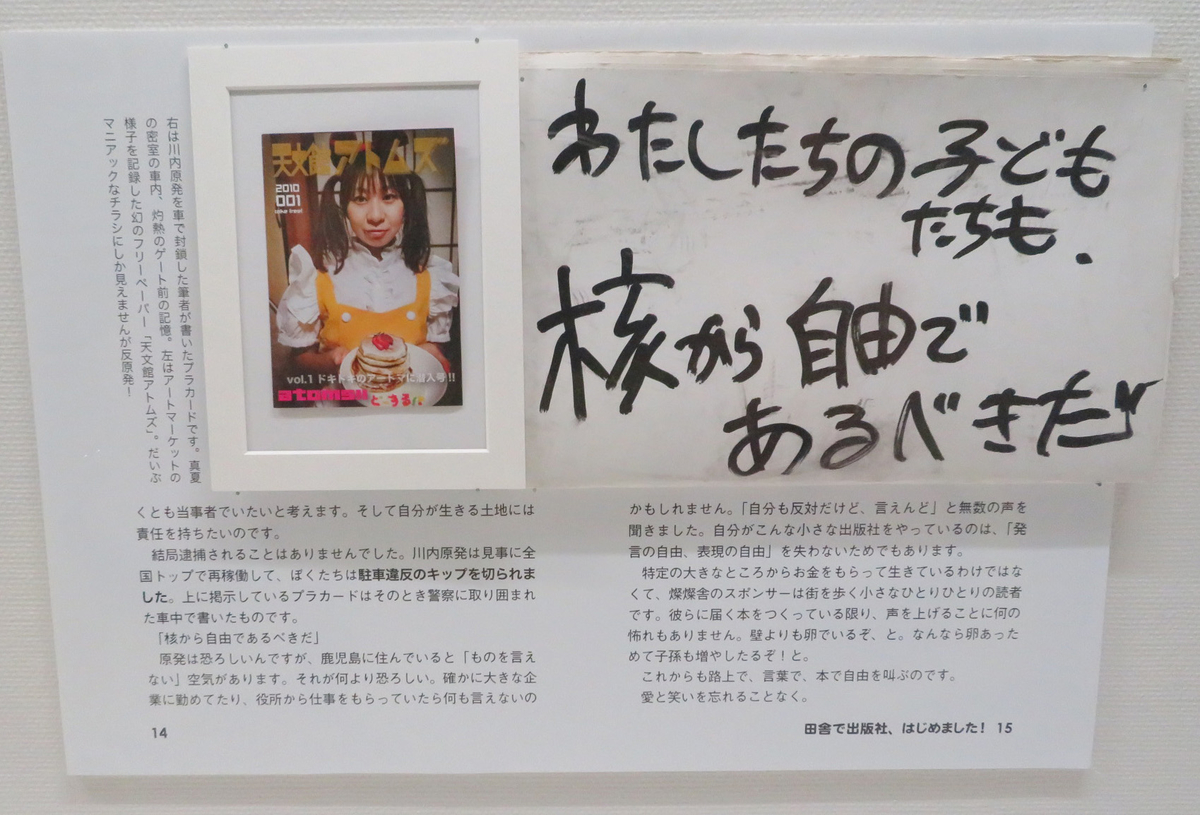 わたしたちの子ども
たちも、
核から自由で
あるべきだ
天文館アトムズ
2010
001
take free!
vol.1 ドキドキのアートマに潜入号!!
atoms
右は川内原発を車で封鎖した筆者が書いたプラカードです。真夏
の密室の車内、灼熱のゲート前の記憶。左はアートマーケットの
様子を記録した幻のフリーペーパー「天文館アトムズ」。だいぶ
マニアックなチラシにしか見えませんが反原発！
くとも当事者でいたいと考えます。そして自分が生きる土地には
責任を持ちたいのです。
結局逮捕されることはありませんでした。川内原発は見事に全
国トップで再稼働して、ぼくたちは駐車違反のキップを切られま
した。上に掲示しているプラカードはそのとき警察に取り囲まれ
た車中で書いたものです。
「核から自由であるべきだ」
原発は恐ろしいんですが、鹿児島に住んでいると「ものを言え
ない」空気があります。それが何より恐ろしい。確かに大きな企
業に勤めてたり、役所から仕事をもらっていたら何も言えないの
14
かもしれません。「自分も反対だけど、言えんど」と無数の声を
聞きました。自分がこんな小さな出版社をやっているのは、「発
言の自由、表現の自由」を失わないためでもあります。
特定の大きなところからお金をもらって生きているわけではな
くて、燦燦舎のスポンサーは街を歩く小さなひとりひとりの読者
です。彼らに届く本をつくっている限り、声を上げることに何の
怖れもありません。壁よりも卵でいるぞ、と。なんなら卵あった
めて子孫も増やしたるぞ！と。
これからも路上で、言葉で、本で自由を叫ぶのです。
愛と笑いを忘れることなく。
田舎で出版社、はじめました！ 15